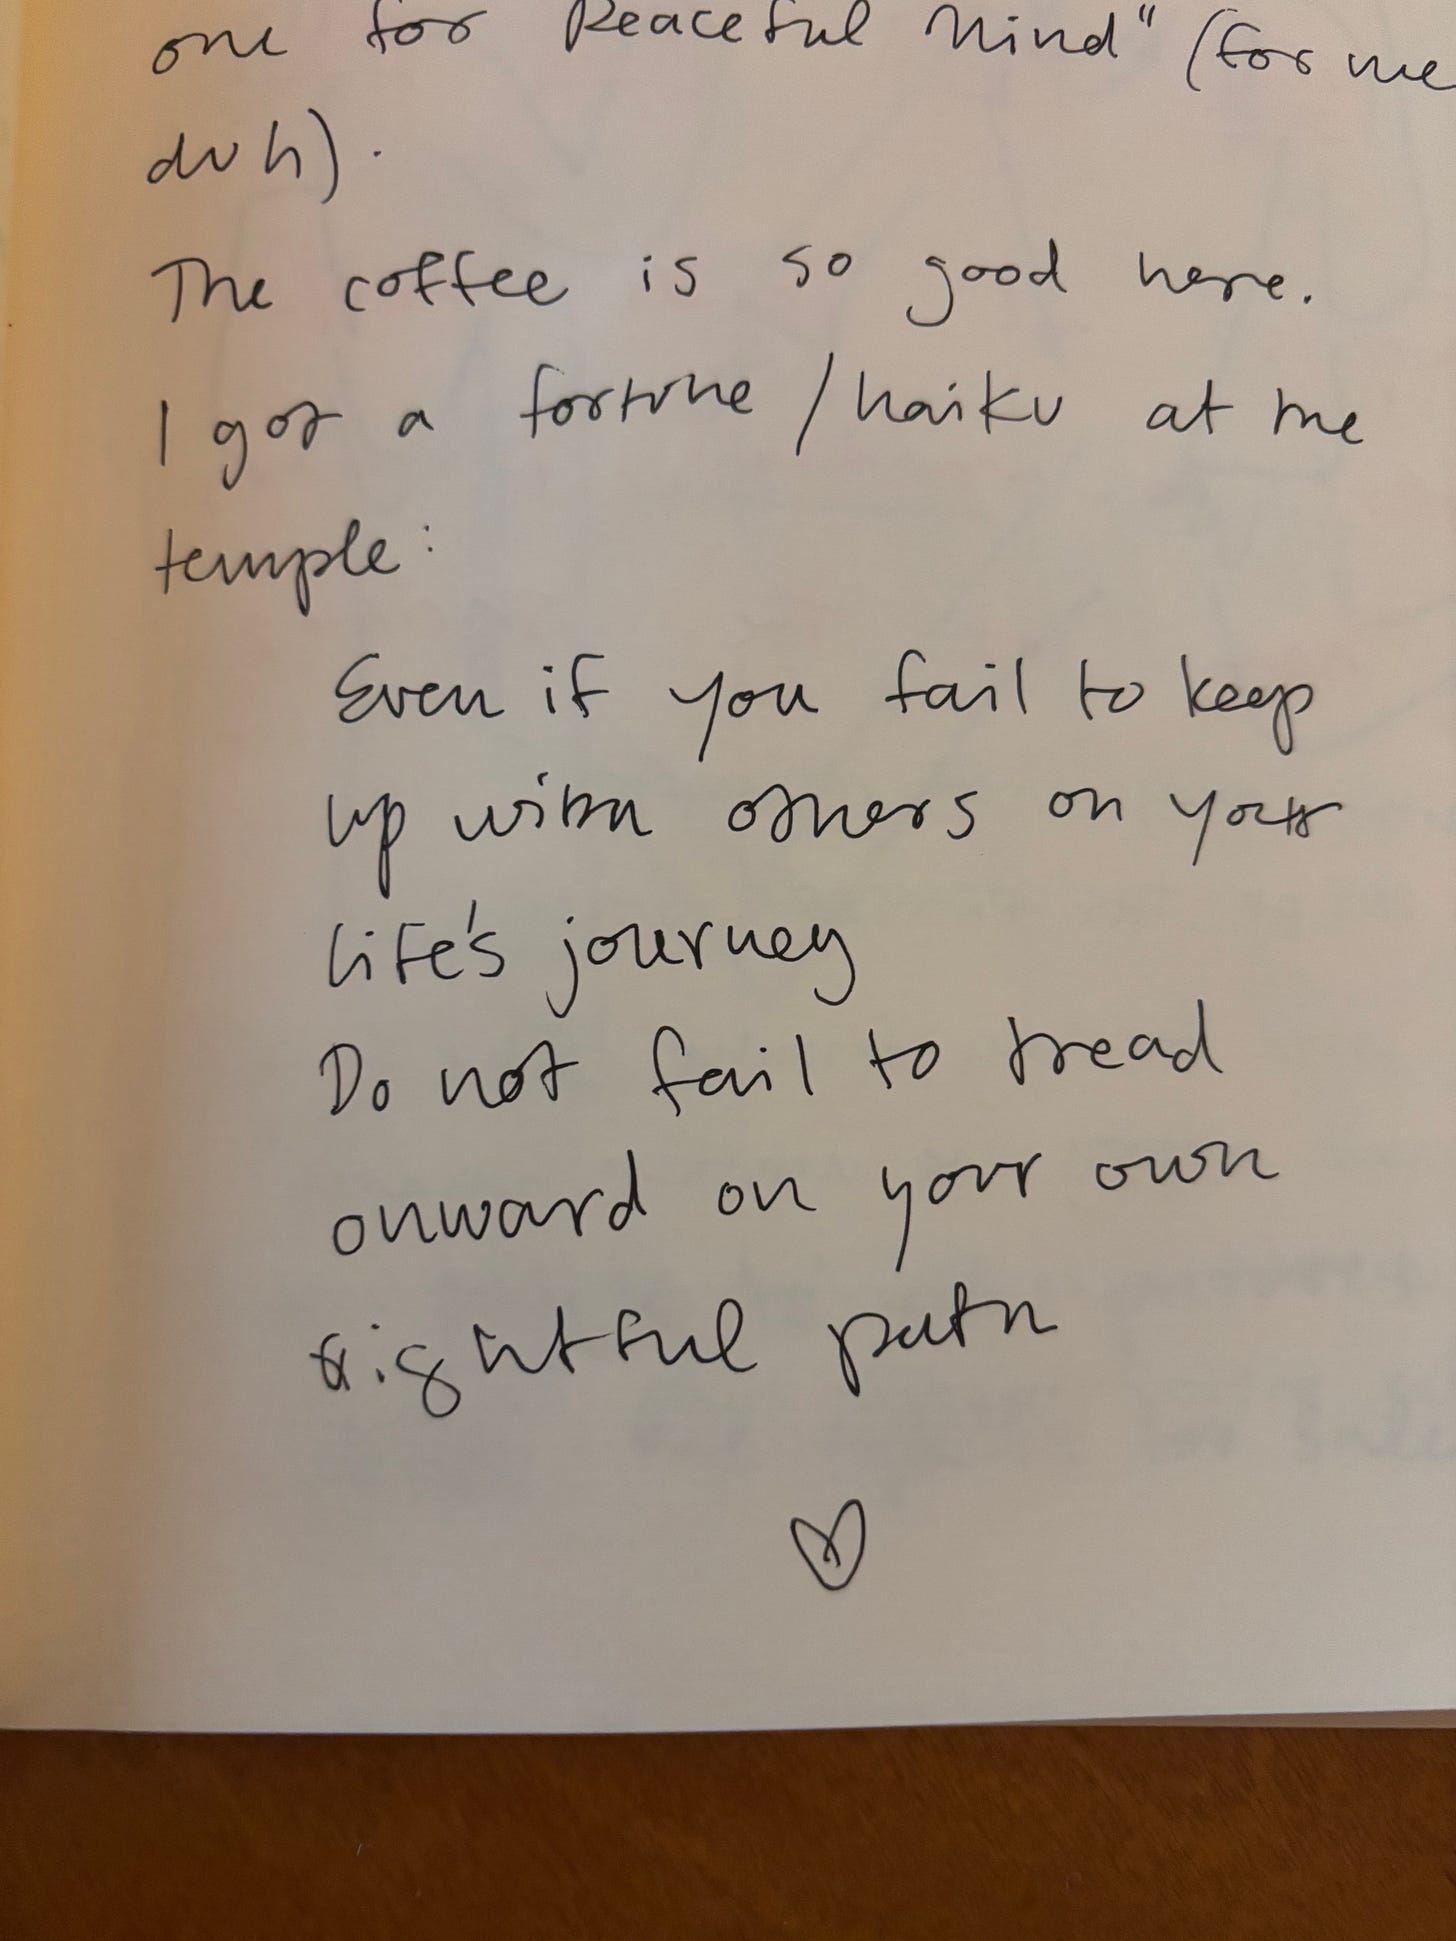 one for Peaceful Mind" (for me
duh).
The coffee is so good here.
I got a fortune / haiku at the
temple:
Even if you fail to keep
up with others on your
life's journey
Do not fail to tread
onward on your own
rightful path